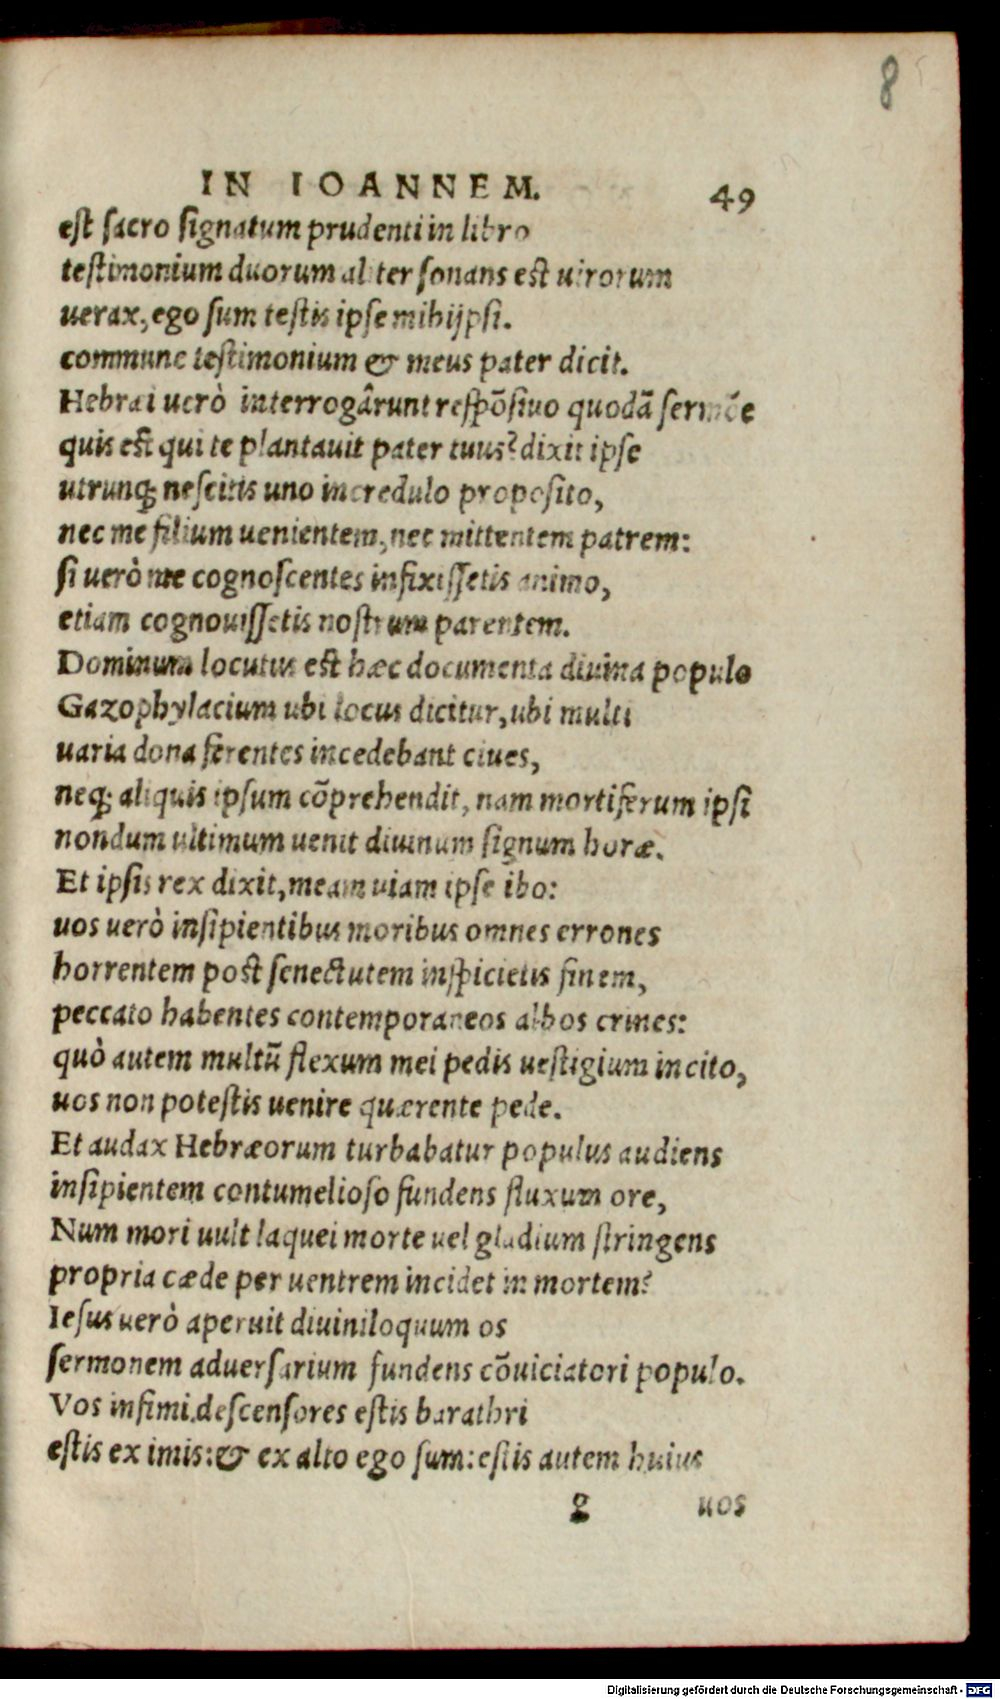 8
IN IOANNEM. 49
est sacro signatum prudenti in libro
testimonium duorum aliter sonans est uirorum
uerax, ego sum testis ipse mihijpsi.
commune testimonium & meus pater dicit.
Hebræi uerò interrogârunt respõsiuo quodã sermõe
quis est qui te plantauit pater tuus? dixit ipse
utrunq; nescitis uno incredulo proposito,
nec me filium uenientem, nec mittentem patrem:
si uerò me cognoscentes infixissetis animo,
etiam cognouissetis nostrum parentem.
Dominum locutus est hæc documenta diuina populo
Gazophylacium ubi locus dicitur, ubi multi
uaria dona ferentes incedebant ciues,
neq; aliquis ipsum cõprehendit, nam mortiferum ipsi
nondum ultimum uenit diuinum signum horæ.
Et ipsis rex dixit, meam uiam ipse ibo:
uos uerò insipientibus moribus omnes errones
horrentem post senectutem inspicietis finem,
peccato habentes contemporaneos albos crines:
quò autem multũ flexum mei pedis uestigium incito,
uos non potestis uenire quærente pede.
Et audax Hebræorum turbabatur populus audiens
insipientem contumelioso fundens fluxum ore,
Num mori uult laquei morte uel gladium stringens
propria cæde per uentrem incidet in mortem?
Iesus uerò aperuit diuiniloquum os
sermonem aduersarium fundens cõuiciatori populo.
Vos infimi descensores estis barathri
estis ex imis: & ex alto ego sum: estis autem huius
g uos
Digitalisierung gefördert durch die Deutsche Forschungsgemeinschaft - DFG